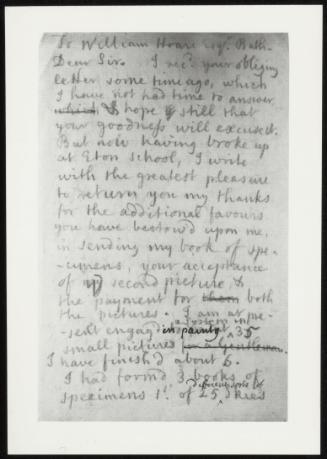 To William Hoare Esqr. Bath.
Dear Sir. I recd. your obliging
letter some time ago, which
I have not had time to answer
which I hope still that
your goodness will excuse it.
But now having broke up
at Eton School, I write
with the greatest pleasure
to return you my thanks
for the additional favours
you have bestow'd upon me,
in sending my book of spe-
-cimens, your acceptance
of my second picture, &
the payment for them both
the pictures. I am at pre-
-sent engag'd in painting 35
small pictures for a Gentleman.
I have finish'd about 6.
I had form'd 3 books of
different sorts of
specimens 1st. of 25 skies